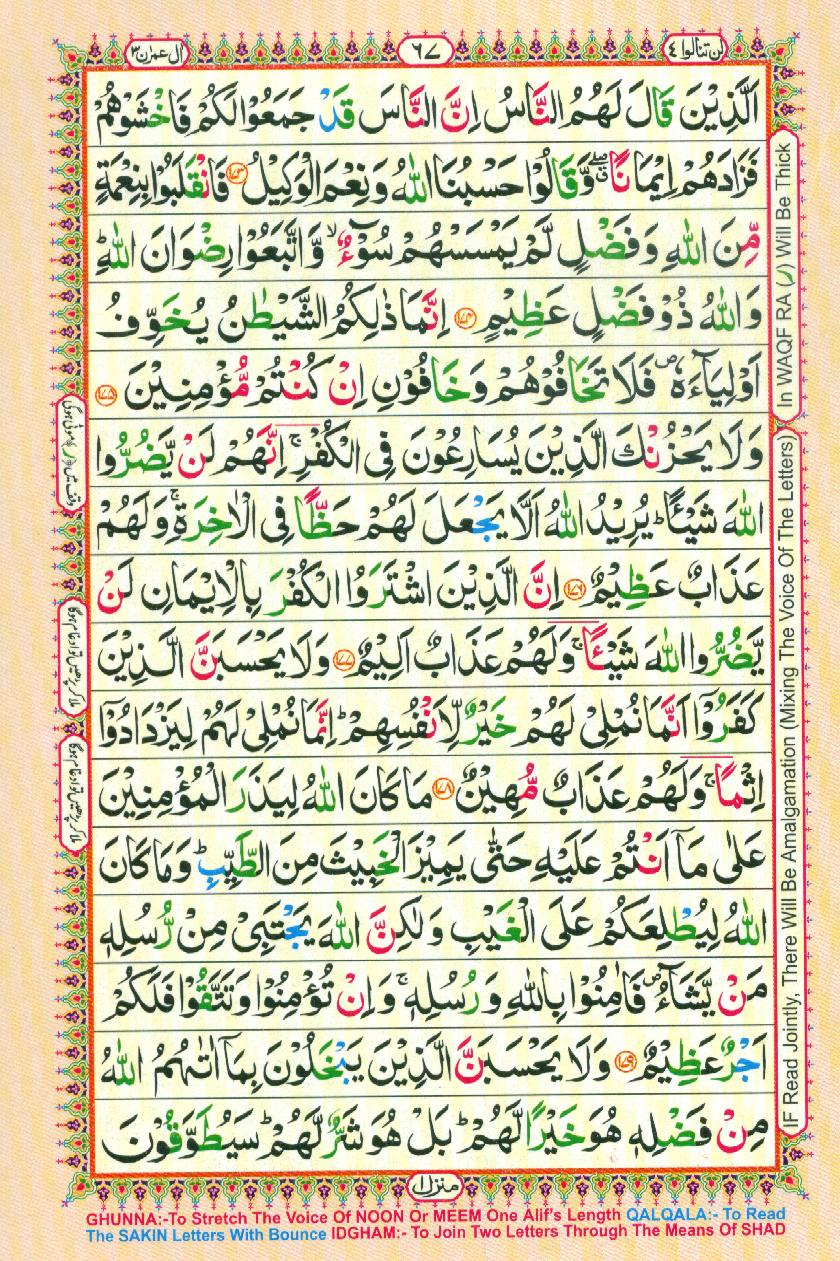 اٰل عمرٰن ٣
٦٧
لن تنالوا ٤
اَلَّذِيْنَ قَالَ لَهُمُ النَّاسُ اِنَّ النَّاسَ قَدْ جَمَعُوْا لَكُمْ فَاخْشَوْهُمْ
فَزَادَهُمْ اِيْمَانًا ۖۗ وَّقَالُوْا حَسْبُنَا اللّٰهُ وَنِعْمَ الْوَكِيْلُ ﴿١٧٣﴾ فَانْقَلَبُوْا بِنِعْمَةٍ
مِّنَ اللّٰهِ وَفَضْلٍ لَّمْ يَمْسَسْهُمْ سُوْٓءٌ ۙ وَّاتَّبَعُوْا رِضْوَانَ اللّٰهِ ؕ
وَاللّٰهُ ذُوْ فَضْلٍ عَظِيْمٍ ﴿١٧٤﴾ اِنَّمَا ذٰلِكُمُ الشَّيْطٰنُ يُخَوِّفُ
اَوْلِيَآءَهٗ ۪ فَلَا تَخَافُوْهُمْ وَخَافُوْنِ اِنْ كُنْتُمْ مُّؤْمِنِيْنَ ﴿١٧٥﴾
وَلَا يَحْزُنْكَ الَّذِيْنَ يُسَارِعُوْنَ فِى الْكُفْرِ ۚ اِنَّهُمْ لَنْ يَّضُرُّوا
اللّٰهَ شَيْـًٔا ؕ يُرِيْدُ اللّٰهُ اَلَّا يَجْعَلَ لَهُمْ حَظًّا فِى الْاٰخِرَةِ ۚ وَلَهُمْ
عَذَابٌ عَظِيْمٌ ﴿١٧٦﴾ اِنَّ الَّذِيْنَ اشْتَرَوُا الْكُفْرَ بِالْاِيْمَانِ لَنْ
يَّضُرُّوا اللّٰهَ شَيْـًٔا ۚ وَلَهُمْ عَذَابٌ اَلِيْمٌ ﴿١٧٧﴾ وَلَا يَحْسَبَنَّ الَّذِيْنَ
كَفَرُوْٓا اَنَّمَا نُمْلِىْ لَهُمْ خَيْرٌ لِّاَنْفُسِهِمْ ؕ اِنَّمَا نُمْلِىْ لَهُمْ لِيَزْدَادُوْٓا
اِثْمًا ۚ وَلَهُمْ عَذَابٌ مُّهِيْنٌ ﴿١٧٨﴾ مَا كَانَ اللّٰهُ لِيَذَرَ الْمُؤْمِنِيْنَ
عَلٰى مَآ اَنْتُمْ عَلَيْهِ حَتّٰى يَمِيْزَ الْخَبِيْثَ مِنَ الطَّيِّبِ ؕ وَمَا كَانَ
اللّٰهُ لِيُطْلِعَكُمْ عَلَى الْغَيْبِ وَلٰكِنَّ اللّٰهَ يَجْتَبِىْ مِنْ رُّسُلِهٖ
مَنْ يَّشَآءُ ۪ فَاٰمِنُوْا بِاللّٰهِ وَرُسُلِهٖ ۚ وَاِنْ تُؤْمِنُوْا وَتَتَّقُوْا فَلَكُمْ
اَجْرٌ عَظِيْمٌ ﴿١٧٩﴾ وَلَا يَحْسَبَنَّ الَّذِيْنَ يَبْخَلُوْنَ بِمَآ اٰتٰىهُمُ اللّٰهُ
مِنْ فَضْلِهٖ هُوَ خَيْرًا لَّهُمْ ؕ بَلْ هُوَ شَرٌّ لَّهُمْ ؕ سَيُطَوَّقُوْنَ
In WAQF RA (ر) Will Be Thick
IF Read Jointly, There Will Be Amalgamation (Mixing The Voice Of The Letters)
منزل ١
GHUNNA:-To Stretch The Voice Of NOON Or MEEM One Alif's Length QALQALA:- To Read
The SAKIN Letters With Bounce IDGHAM:- To Join Two Letters Through The Means Of SHAD